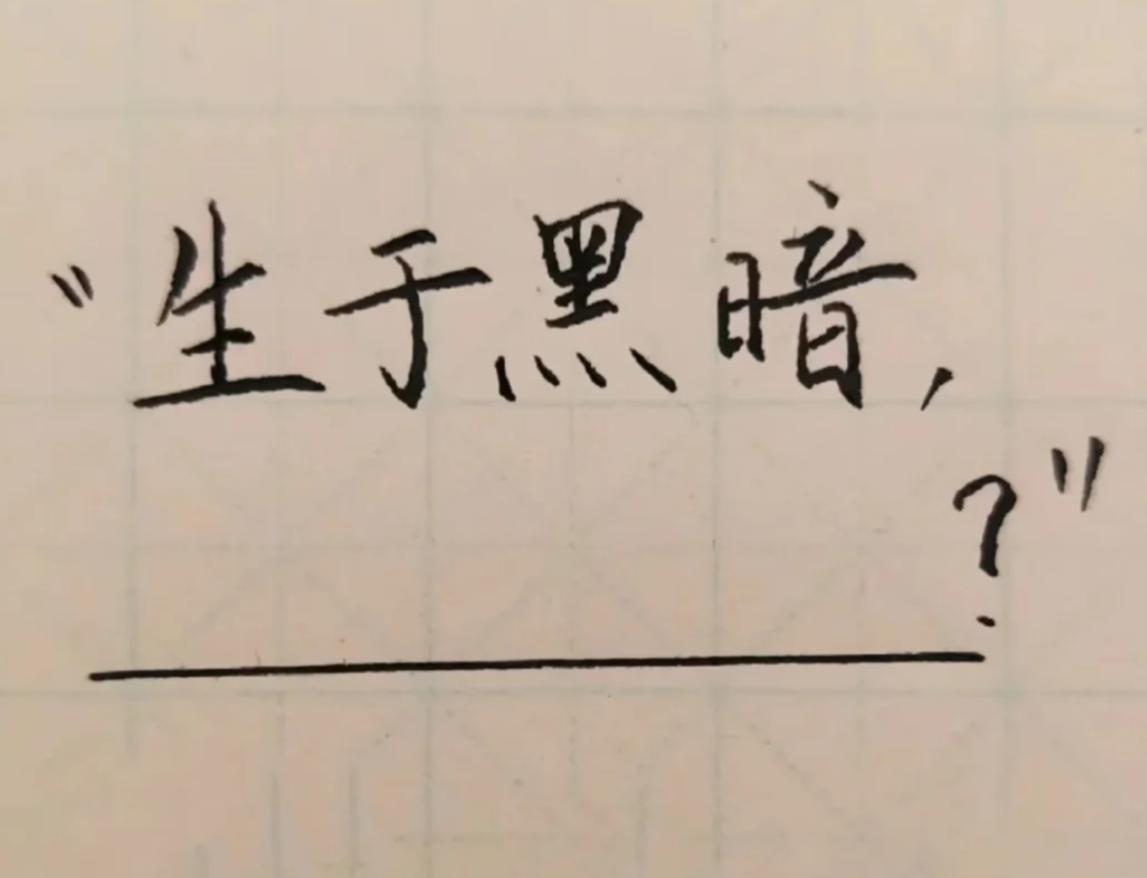 “生于黑暗，
？”